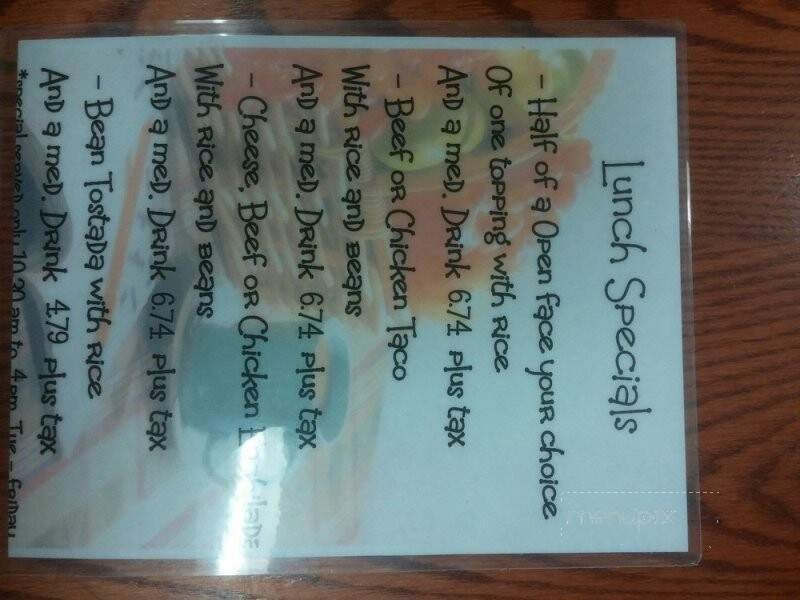 Lunch Specials
- Half of a Open face your choice
Of one topping with rice
And a med. Drink 6.74 plus tax
- Beef or Chicken Taco
With rice and beans
And a med. Drink 6.74 plus tax
- Cheese, Beef or Chicken
With rice and beans
And a med. Drink 6.74 plus tax
- Bean Tostada with rice
And a med. Drink 4.79 plus tax
*special served only 10:30 am to 4 pm Tue - friday
menupix